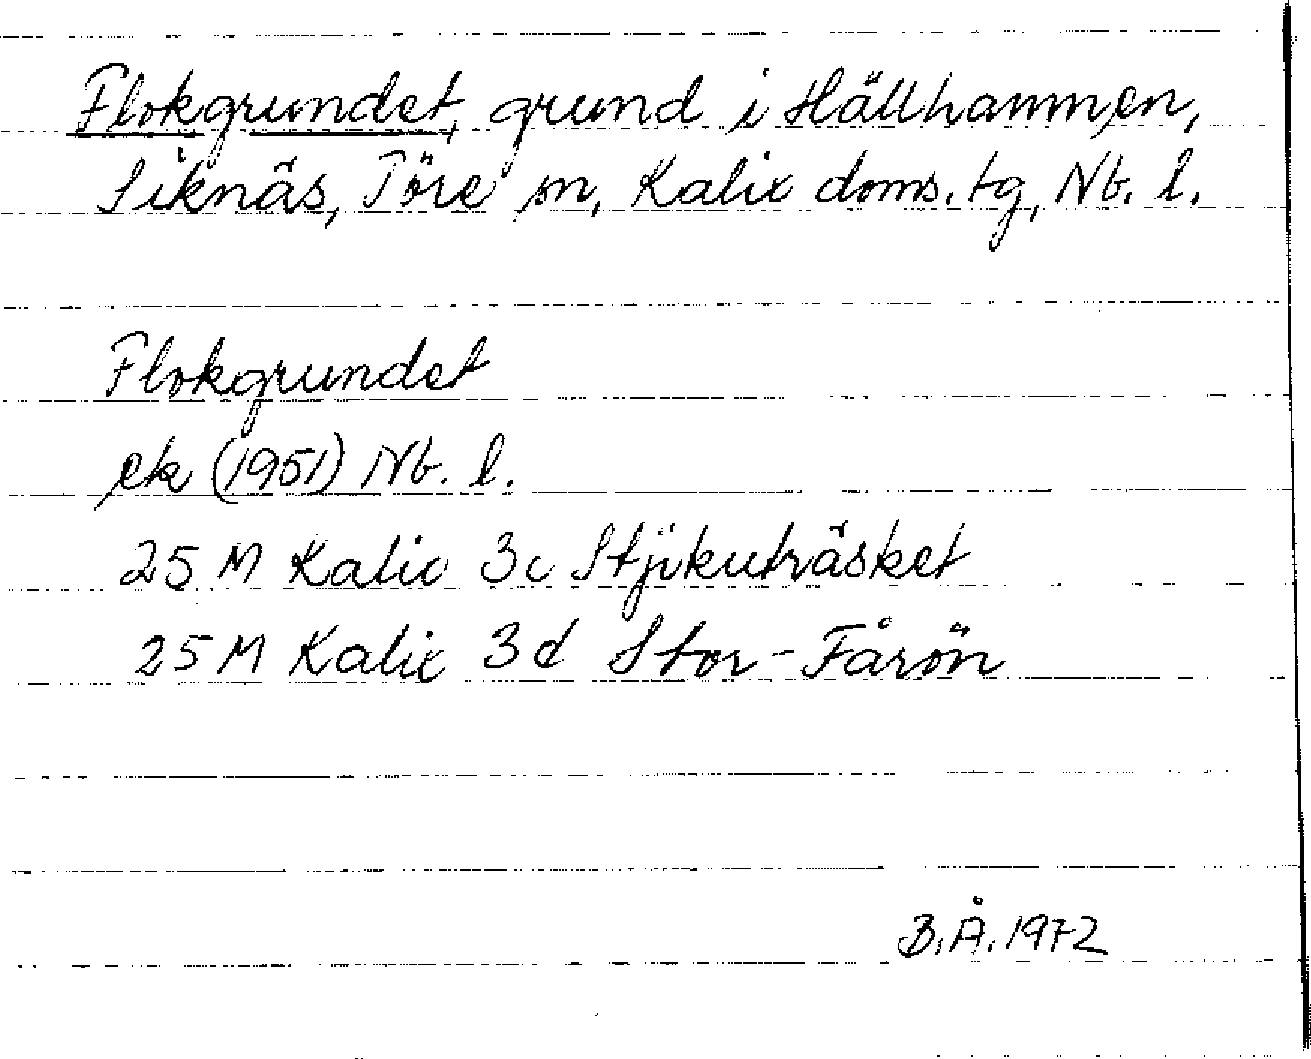 Flokgrundet, grund i Hällhammen,
Siknäs, Töre sn, Kalix doms. tg, Nb. l.
Flokgrundet
ek (1951) Nb. l.
25 M Kalix 3c Stjikuträsket
25 M Kalix 3d Stor-Fårön
B.Å. 1972